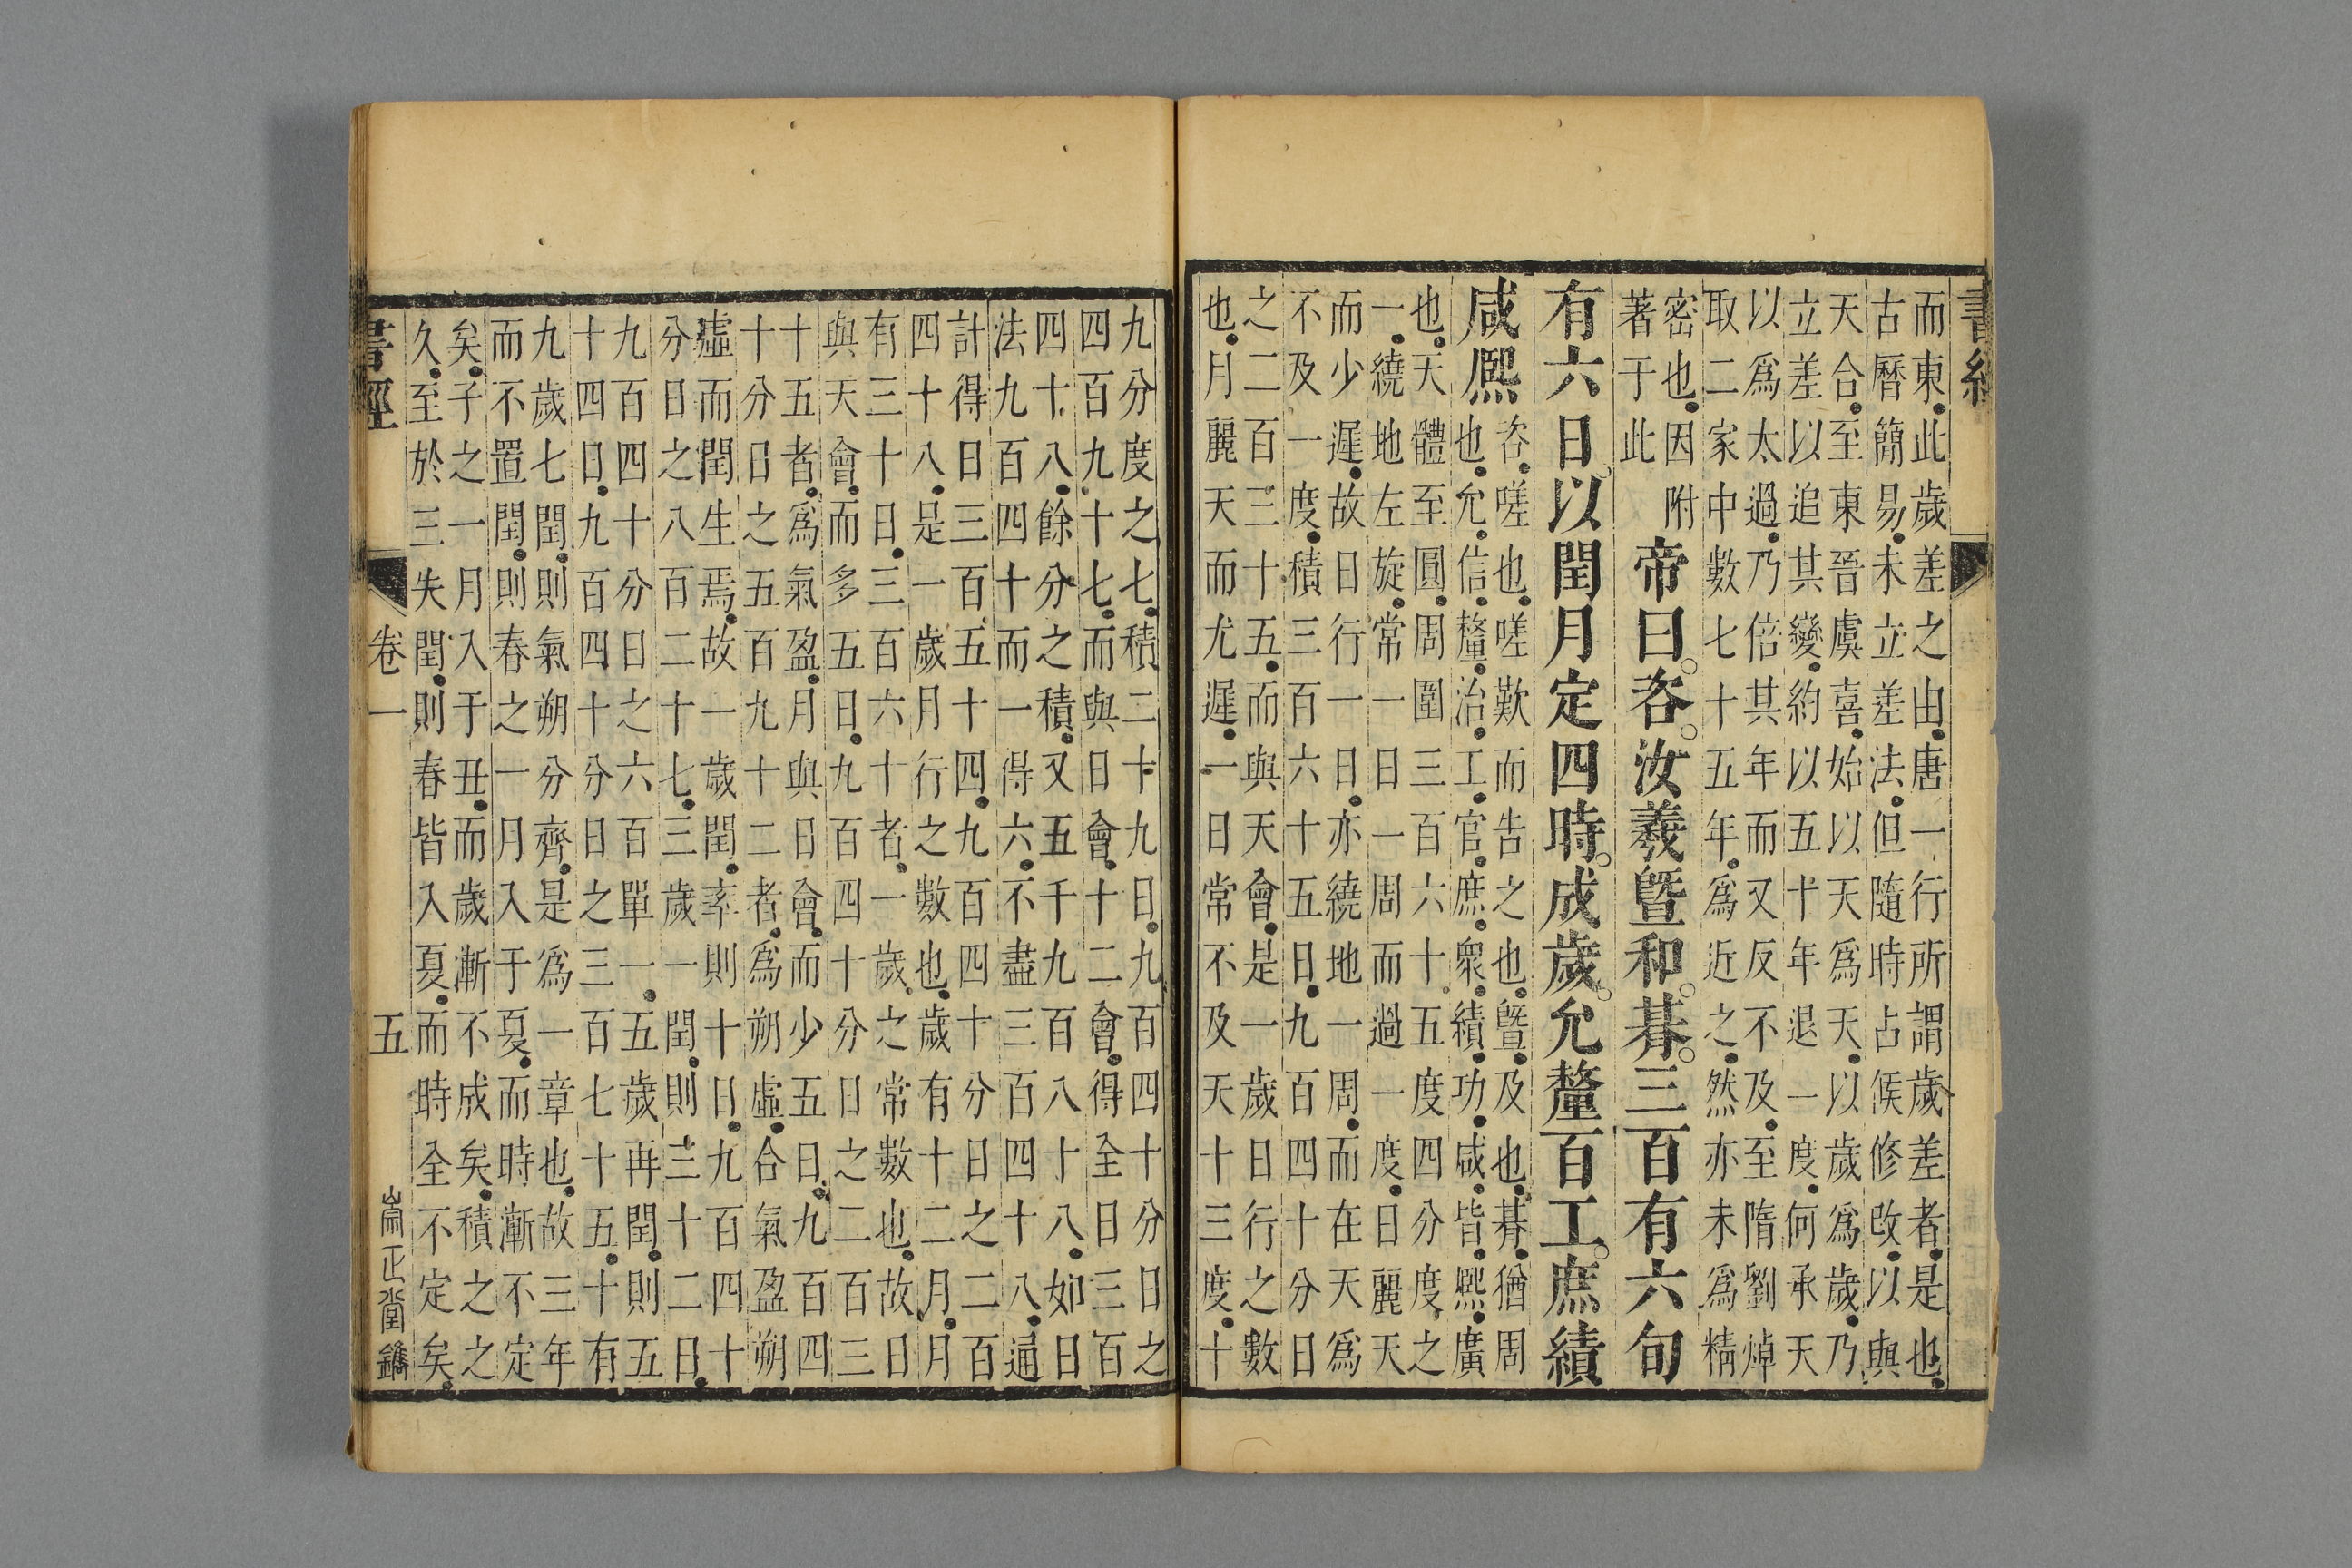 書經
而東此歲差之由唐一行所謂歲差者是也
古曆簡易未立差法但隨時占候修改以與
天合至東晉虞喜始以天爲天以歲爲歲乃
立差以追其變約以五十年退一度何承天
以爲太過乃倍其年而又反不及至隋劉焯
取二家中數七十五年爲近之然亦未爲精
密也因附
著于此
帝曰咨汝羲曁和朞三百有六旬
有六日以閏月定四時成歲允釐百工庶績
咸熈
咨嗟也嗟歎而告之也曁及也朞猶周
也允信釐治工官庶衆績功咸皆熈廣
也天體至圓周圍三百六十五度四分度之
一繞地左旋常一日一周而過一度日麗天
而少遲故日行一日亦繞地一周而在天爲
不及一度積三百六十五日九百四十分日
之二百三十五而與天會是一歲日行之數
也月麗天而尤遲一日常不及天十三度十
九分度之七積二十九日九百四十分日之
四百九十七而與日會十二會得全日三百
四十八餘分之積又五千九百八十八如日
法九百四十而一得六不盡三百四十八通
計得日三百五十四九百四十分日之二百
四十八是一歲月行之數也歲有十二月月
有三十日三百六十者一歲之常數也故日
與天會而多五日九百四十分日之二百三
十五者爲氣盈月與日會而少五日九百四
十分日之五百九十二者爲朔虛合氣盈朔
虛而閏生焉故一歲閏率則十日九百四十
分日之八百二十七三歲一閏則三十二日
九百四十分日之六百單一五歲再閏則五
十四日九百四十分日之三百七十五十有
九歲七閏則氣朔分齊是爲一章也故三年
而不置閏則春之一月入于夏而時漸不定
矣子之一月入于丑而歲漸不成矣積之之
久至於三失閏則春皆入夏而時全不定矣
書經
卷一
五
崇正堂鐫